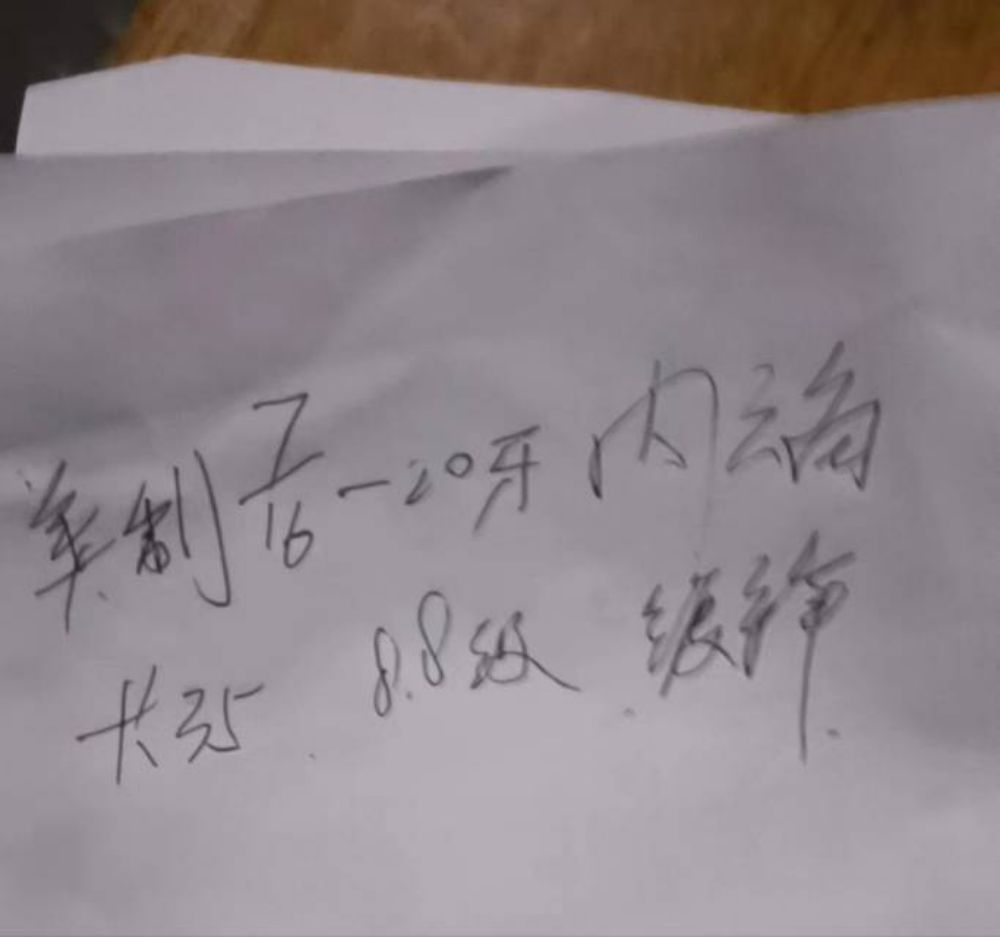 美制 7/16-20牙 内六角
长35 8.8级 镀锌